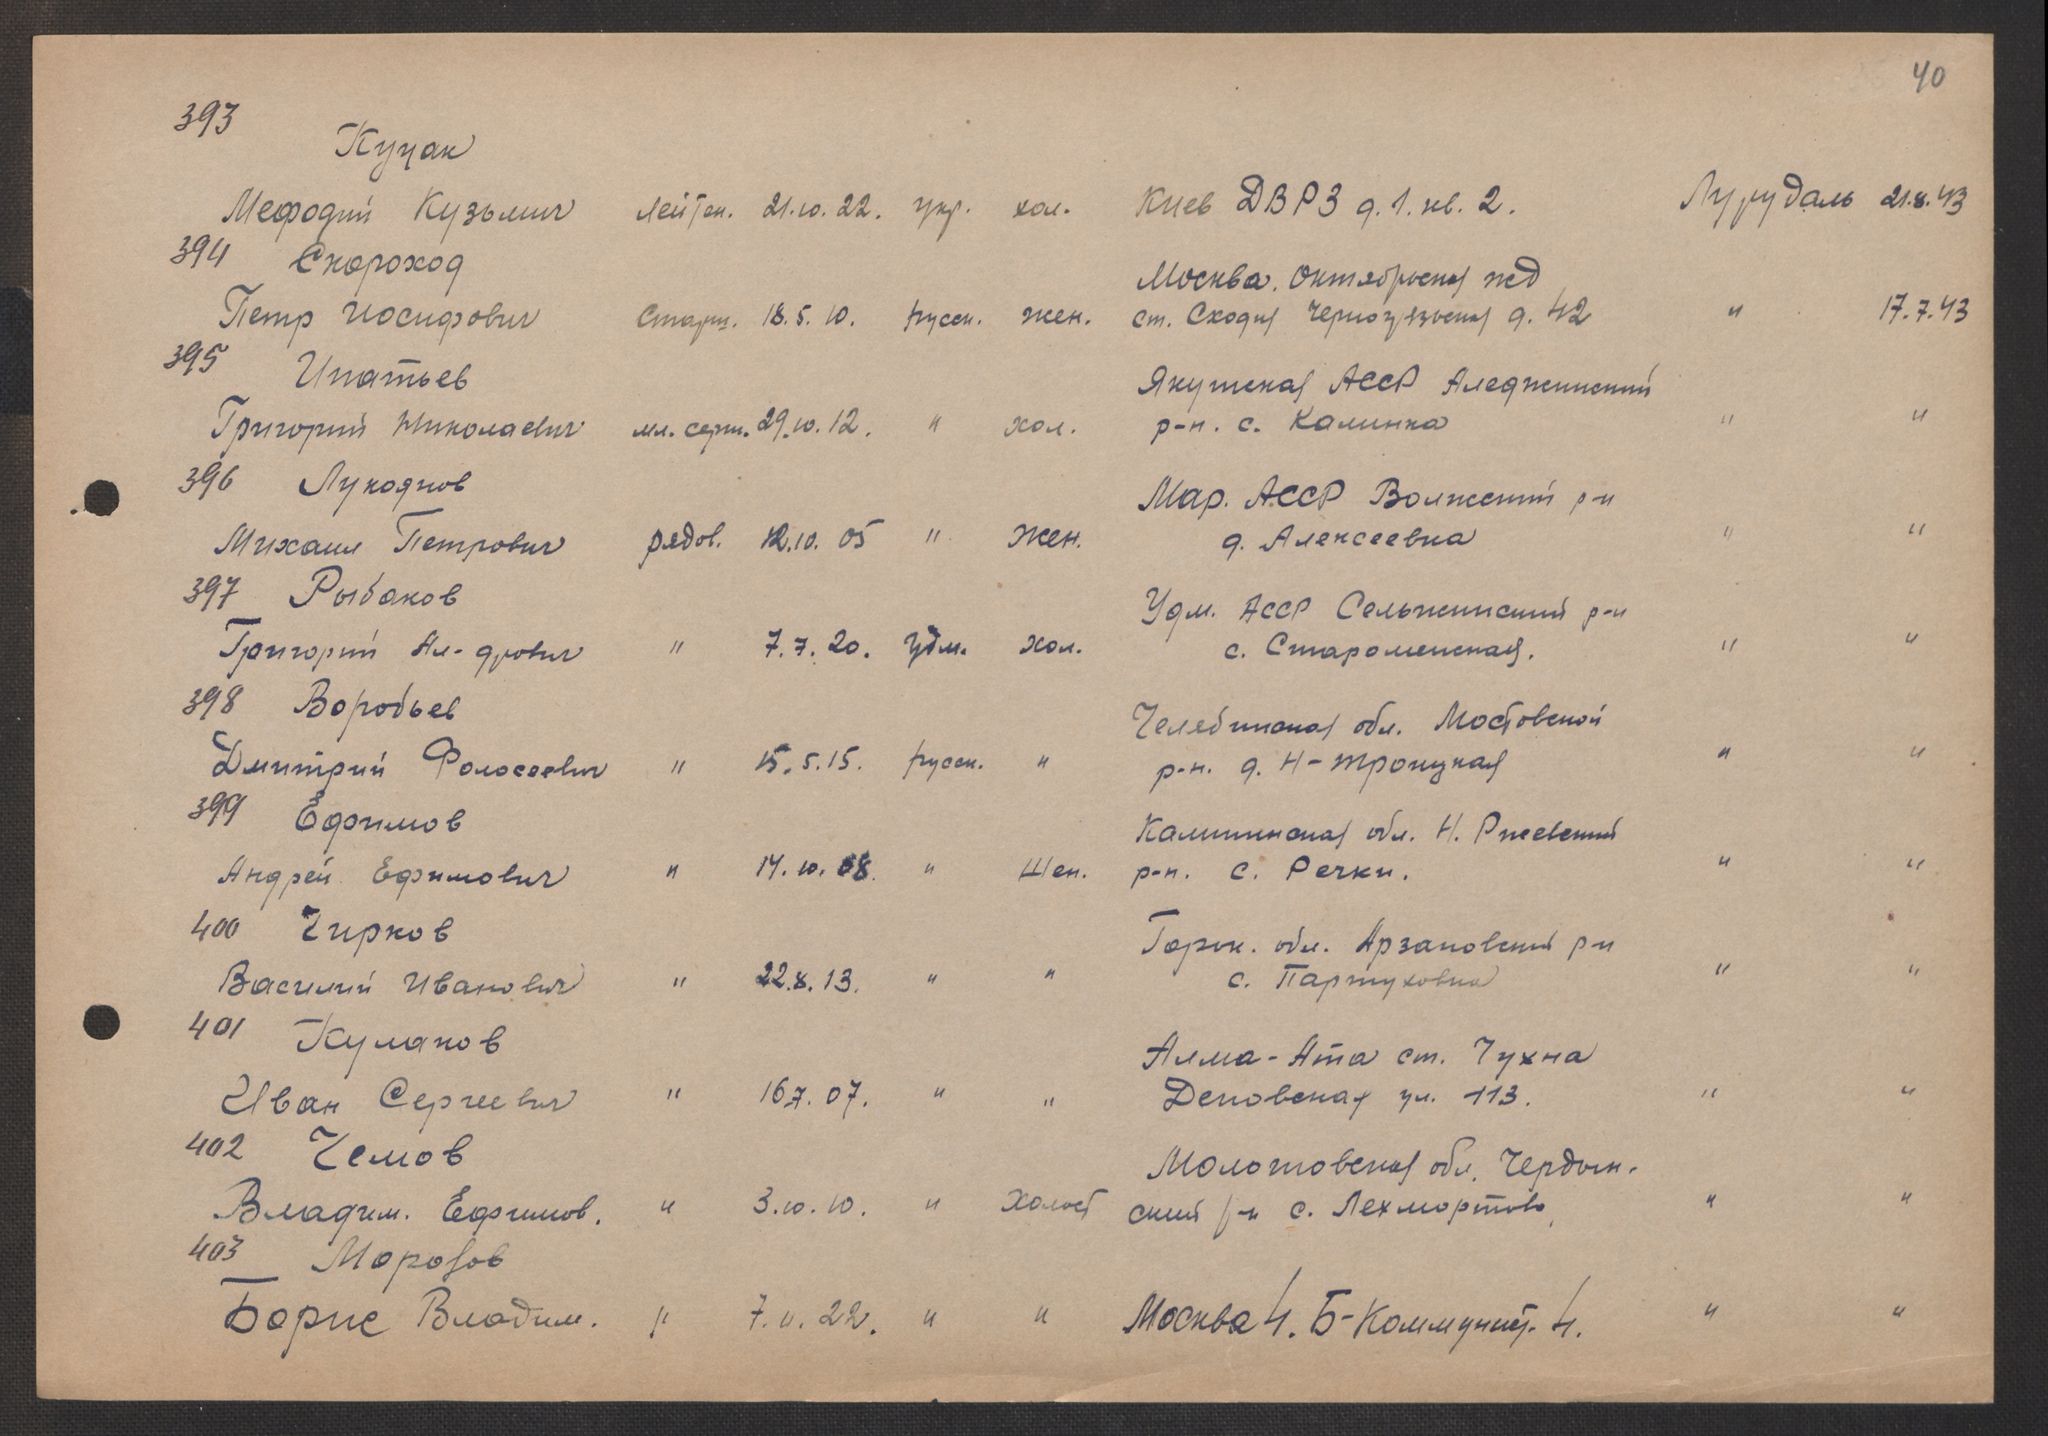 40
393
Куцак
Мефодий Кузьмич лейтен. 21.10.22. укр. хол. Киев ДВРЗ д.1. кв. 2. Лурудаль 21.8.43
394 Скороход
Москва. Октябрьская жд
Петр Иосифович старш. 18.5.10. русск. жен. ст. Сходня Черногрязьская д. 42 " 17.7.43
395 Ипатьев
Якутская АССР Аледжинский
Григорий Николаевич мл. серж. 29.10.12. " хол. р-н. с. Калинка " "
396 Лукоянов
Мар. АССР Волжский р-н
Михаил Петрович рядов. 12.10.05 " жен. д. Алексеевка " "
397 Рыбаков
Удм. АССР Сельжинский р-н
Григорий Ал-дрович " 7.7.20. удм. хол. с. Староменская. " "
398 Воробьев
Челябинская обл. Мостовской
Дмитрий Фолосеевич " 15.5.15. русск. " р-н. д. Н-Троицкая " "
399 Ефимов
Калининская обл. Н. Ржевский
Андрей Ефимович " 14.10.08. " Шен. р-н. с. Речки. " "
400 Чирков
Горьк. обл. Арзановский р-н
Василий Иванович " 22.8.13. " " с. Партуховка " "
401 Кулаков
Алма-Ата ст. Чухна
Иван Сергеевич " 16.7.07. " " Деповская ул. 113. " "
402 Чемов
Молотовская обл. Чердын-
Владим. Ефимов. " 3.10.10. " Холост ский р-н с. Лехмортово " "
403 Морозов
Борис Владим. " 7.11.22. " " Москва 4. Б-Коммунист. 4. " "